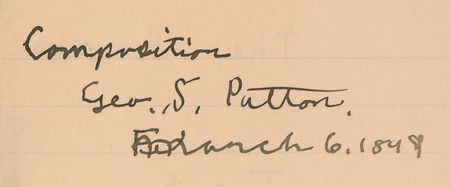 Composition
Geo. S. Patton.
March 6. 1898